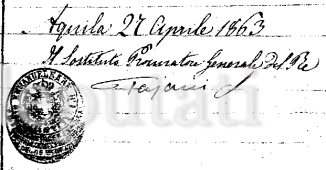 Aquila 27 Aprile 1863
Il Sostituto Procuratore Generale del Re
Tajani